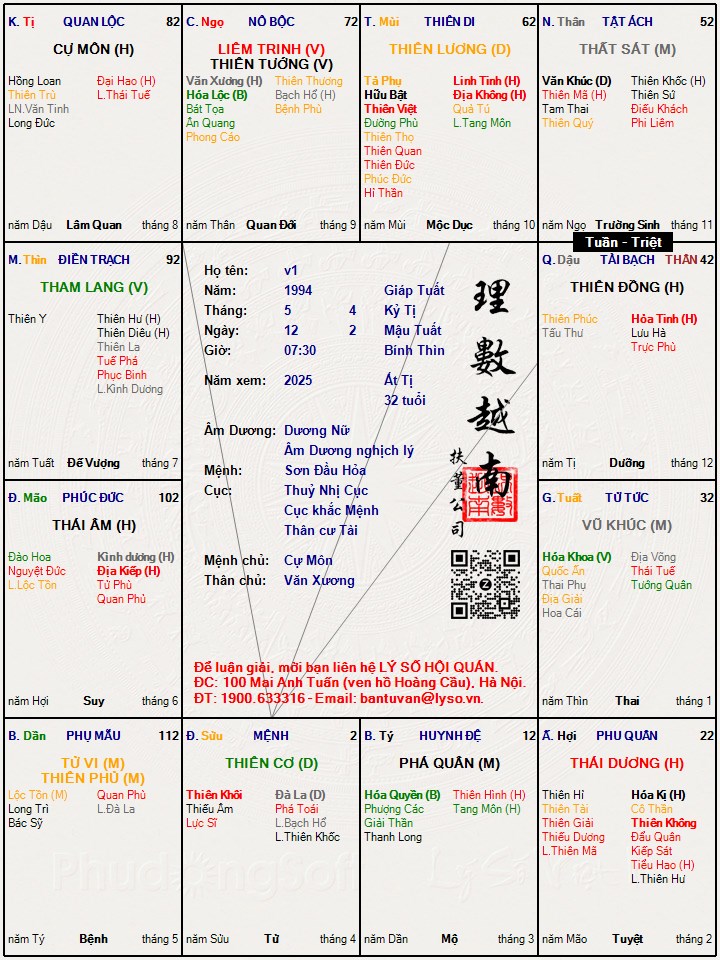 K. Tị QUAN LỘC 82
CỰ MÔN (H)
Hồng Loan Đại Hao (H)
Thiên Trù L.Thái Tuế
LN.Văn Tinh
Long Đức
năm Dậu Lâm Quan tháng 8
C. Ngọ NÔ BỘC 72
LIÊM TRINH (V)
THIÊN TƯỚNG (V)
Văn Xương (H) Thiên Thương
Hóa Lộc (B) Bạch Hổ (H)
Bát Tọa Bệnh Phù
Ân Quang
Phong Cáo
năm Thân Quan Đới tháng 9
T. Mùi THIÊN DI 62
THIÊN LƯƠNG (D)
Tả Phụ Linh Tinh (H)
Hữu Bật Địa Không (H)
Thiên Việt Quả Tú
Đường Phù L.Tang Môn
Thiên Thọ
Thiên Quan
Thiên Đức
Phúc Đức
Hỉ Thần
năm Mùi Mộc Dục tháng 10
N. Thân TẬT ÁCH 52
THẤT SÁT (M)
Văn Khúc (D) Thiên Khốc (H)
Thiên Mã (H) Thiên Sứ
Tam Thai Điếu Khách
Thiên Quý Phi Liêm
năm Ngọ Trường Sinh tháng 11
Tuần - Triệt
M. Thìn ĐIỀN TRẠCH 92
THAM LANG (V)
Thiên Y Thiên Hư (H)
Thiên Diêu (H)
Thiên La
Tuế Phá
Phục Binh
L.Kình Dương
năm Tuất Đế Vượng tháng 7
Họ tên: v1
Năm: 1994 Giáp Tuất
Tháng: 5 4 Kỷ Tị
Ngày: 12 2 Mậu Tuất
Giờ: 07:30 Bính Thìn
Năm xem: 2025 Ất Tị
32 tuổi
Âm Dương: Dương Nữ
Âm Dương nghịch lý
Mệnh: Sơn Đầu Hỏa
Cục: Thuỷ Nhị Cục
Cục khắc Mệnh
Thân cư Tài
Mệnh chủ: Cự Môn
Thân chủ: Văn Xương
理數越南
扶董公司
Để luận giải, mời bạn liên hệ LÝ SỐ HỘI QUÁN.
ĐC: 100 Mai Anh Tuấn (ven hồ Hoàng Cầu), Hà Nội.
ĐT: 1900.633316 - Email: bantuvan@lyso.vn.
Q. Dậu TÀI BẠCH THÂN 42
THIÊN ĐỒNG (H)
Thiên Phúc Hỏa Tinh (H)
Tấu Thư Lưu Hà
Trực Phù
năm Tị Dưỡng tháng 12
Đ. Mão PHÚC ĐỨC 102
THÁI ÂM (H)
Đào Hoa Kình dương (H)
Nguyệt Đức Địa Kiếp (H)
L.Lộc Tồn Tử Phù
Quan Phủ
năm Hợi Suy tháng 6
G. Tuất TỬ TỨC 32
VŨ KHÚC (M)
Hóa Khoa (V) Địa Võng
Quốc Ấn Thái Tuế
Thai Phụ Tướng Quân
Địa Giải
Hoa Cái
năm Thìn Thai tháng 1
B. Dần PHỤ MẪU 112
TỬ VI (M)
THIÊN PHỦ (M)
Lộc Tồn (M) Quan Phù
Long Trì L.Đà La
Bác Sỹ
năm Tý Bệnh tháng 5
Đ. Sửu MỆNH 2
THIÊN CƠ (D)
Thiên Khôi Đà La (D)
Thiếu Âm Phá Toái
Lực Sĩ L.Bạch Hổ
L.Thiên Khốc
năm Sửu Tử tháng 4
B. Tý HUYNH ĐỆ 12
PHÁ QUÂN (M)
Hóa Quyền (B) Thiên Hình (H)
Phượng Các Tang Môn (H)
Giải Thần
Thanh Long
năm Dần Mộ tháng 3
Ấ. Hợi PHU QUÂN 22
THÁI DƯƠNG (H)
Thiên Hỉ Hóa Kị (H)
Thiên Tài Cô Thần
Thiên Giải Thiên Không
Thiếu Dương Đẩu Quân
L.Thiên Mã Kiếp Sát
Tiểu Hao (H)
L.Thiên Hư
năm Mão Tuyệt tháng 2